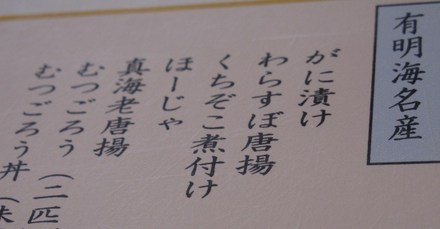 有明海名産
がに漬け
わらすぼ唐揚
くちぞこ煮付け
ほーじゃ
真海老唐揚
むつごろう（二匹
むつごろう丼（味